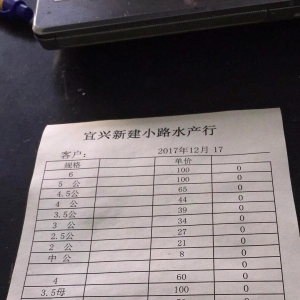 宜兴新建小路水产行
客户： 2017年12月 17
规格 单价
6 100 0
5 公 100 0
4.5公 65 0
4 公 44 0
3.5公 39 0
3 公 34 0
2.5公 27 0
2 公 21 0
中 公 8 0
0
4 60 0
3.5母 100 0
0